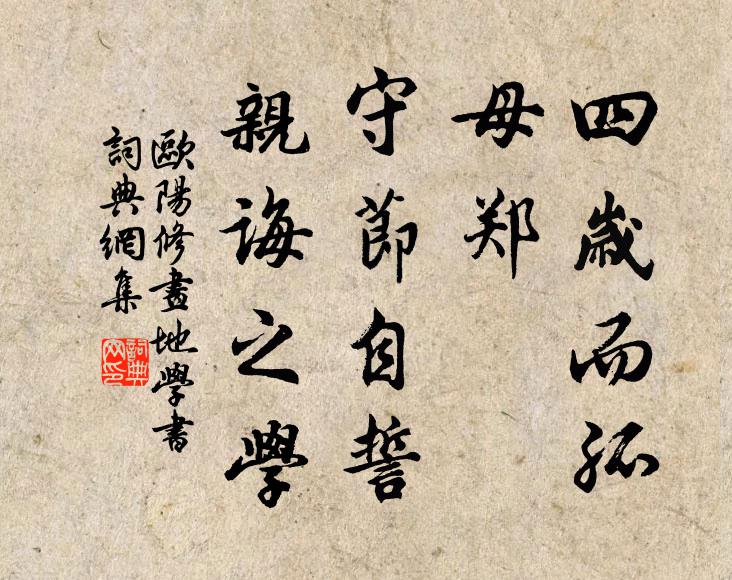 四歲而孤
母郑
守節自誓
親誨之學
歐陽修畫地學書
詞典網集
詞典
网印